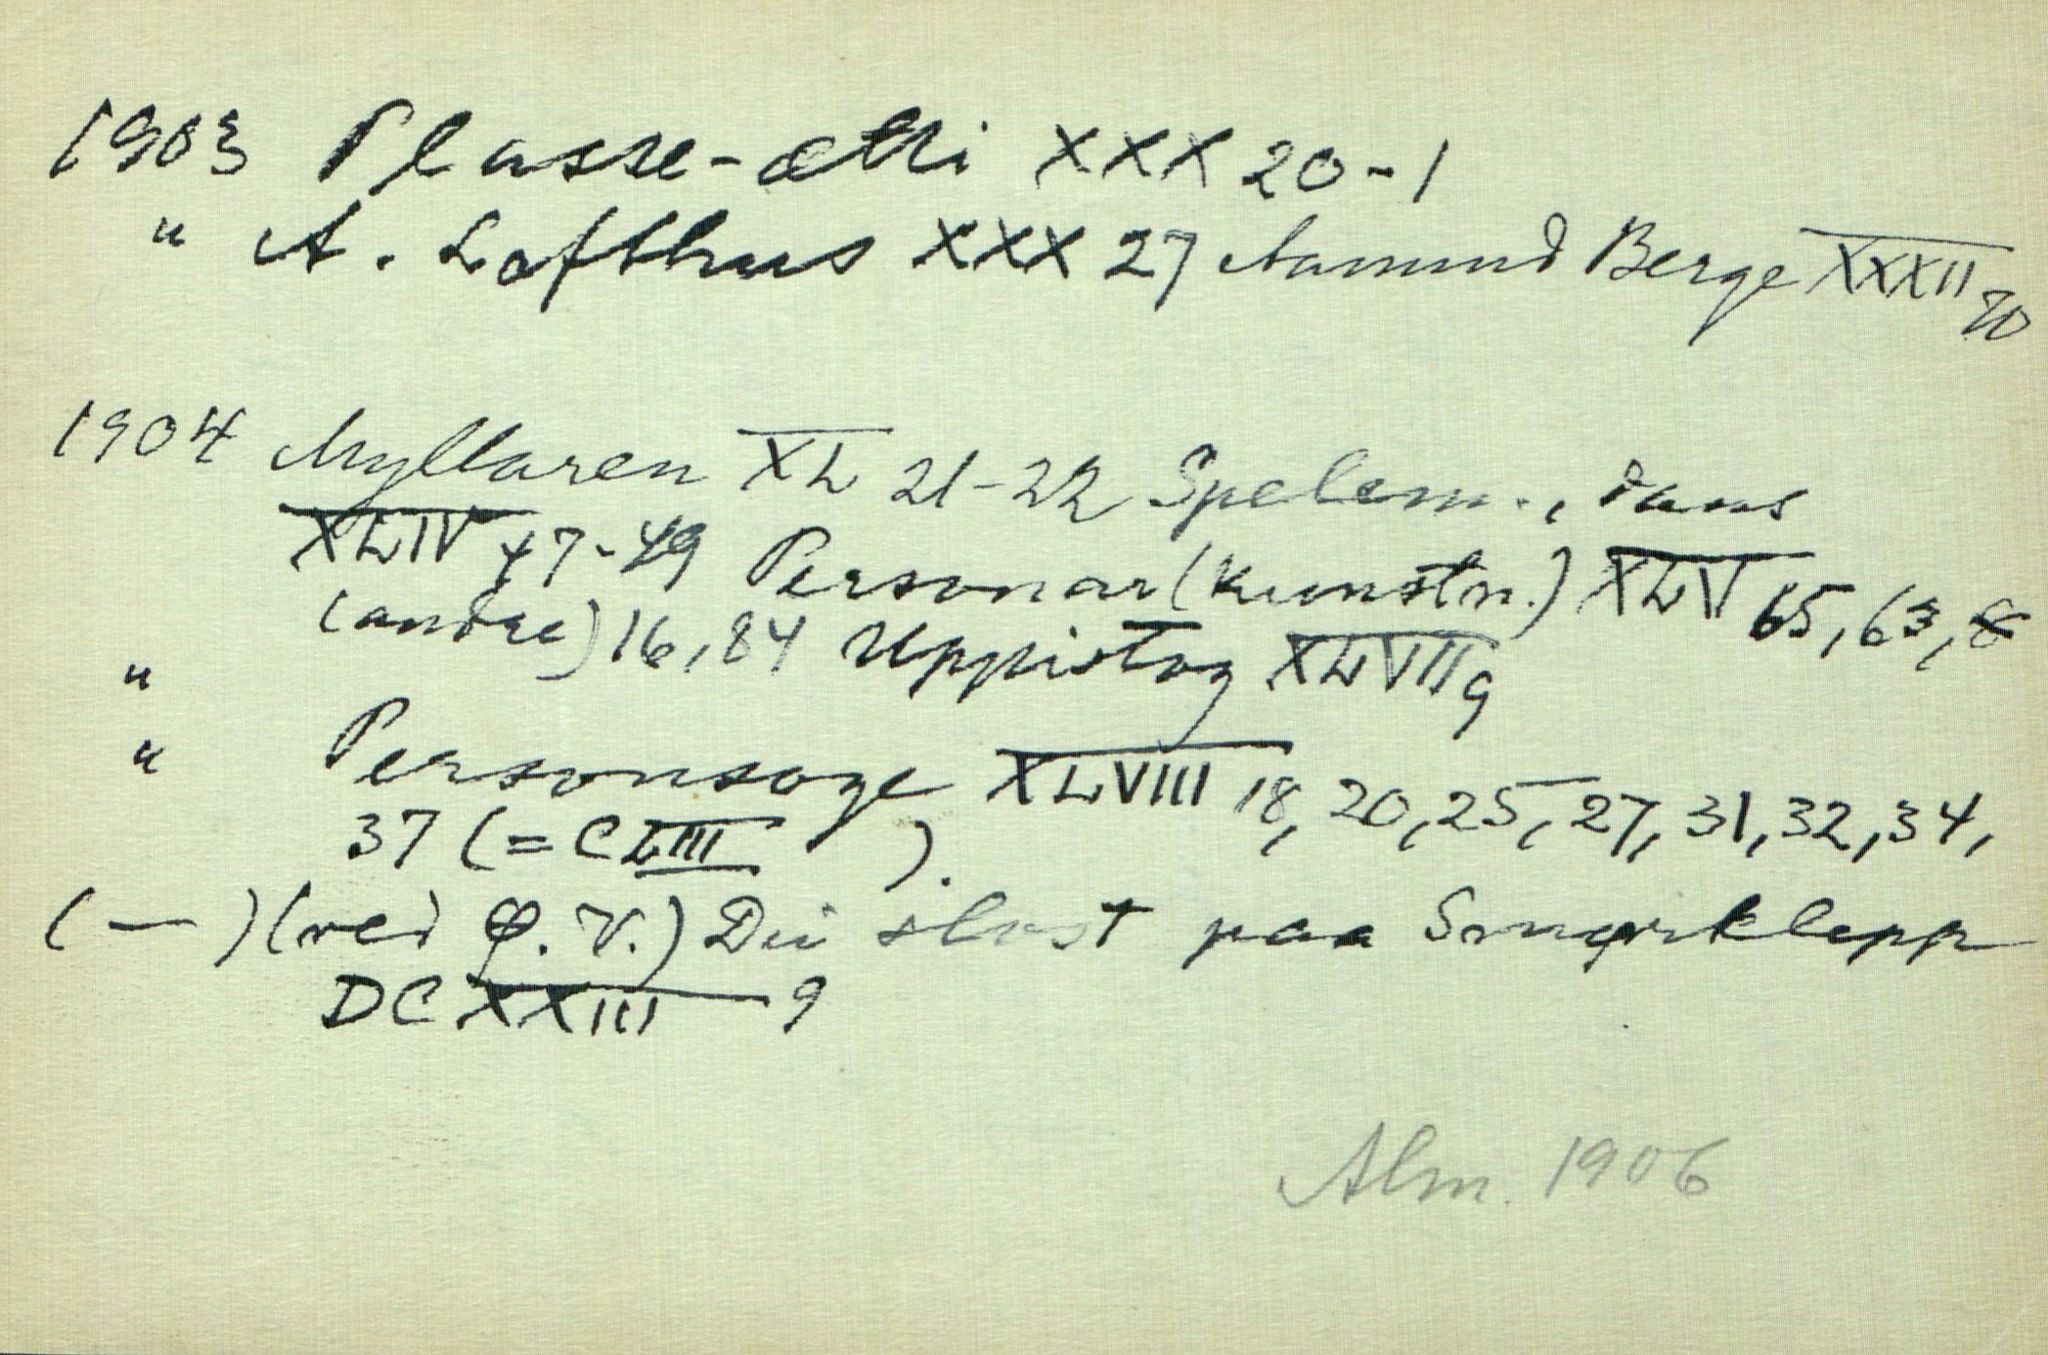 1903 Plasse-ætti XXX 20-1
" A. Lofthus XXX 27 Aamund Berge XXXII 70
1904 Myllaren XL 21-22 Spelem., dans
XLIV 47-49 Personar (Kunstn.) XLV 65, 63, 8
(andre) 16, 84 Uppistog XLVII 9
"
" Personsoge XLVIII 18, 20, 25, 27, 31, 32, 34,
37 (= CLIII ).
(—) (ved Ø. V.) Dei slost paa Smørklepp
DCXXIII 9
Alm. 1906